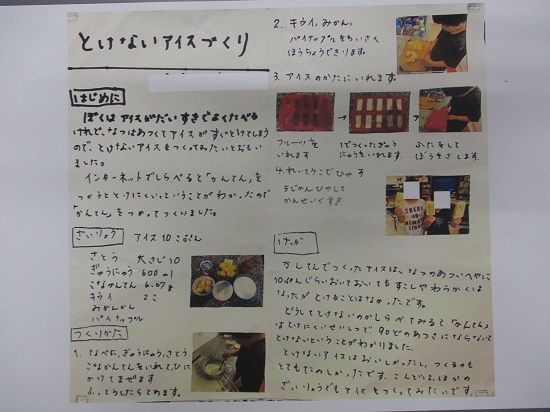 とけないアイスづくり
はじめに
ぼくはアイスがだいすきでよくたべる
けれど、なつはあつくてアイスがすぐとけてしまう
ので、とけないアイスもつくってみたいとおもい
ました。
インターネットでしらべると「かんてん」を
つかうととけにくいということがわかったので
「かんてん」をつかってつくりました。
ざいりょう アイス10こぶん
さとう 大さじ10
ぎゅうにゅう 600ml
こなかんてん 6.67g
キウイ 2こ
みかんかん
パイナップル
つくりかた
1. なべに、ぎゅうにゅう、さとう、
こなかんてんをいれて、ひに
かけてまぜます
ふっとうしたらとめます。
2. キウイ、みかん、
パイナップルをちいさく
ほうちょうできります。
3. アイスのかたにいれます。
フルーツを
いれます
1でつくったぎゅう
にゅうをいれます。
ふたをして
ぼうをさします。
4. れいとうこでひやす
5じかんひやして
かんせいです!
けっか
かんてんでつくったアイスは、なつのあついへやに
10ぷんぐらいおいておいてもすこしやわらかくは
なったがとけることはなかったです。
どうしてとけないのかしらべてみると「かんてん」
はとけにくいせいしつで90どのあつさにならないと
とけないということがわかりました。
とけないアイスはおいしかったし、つくるのも
とてもたのしかったです。こんどは、ほかの
ざいりょうでもアイスをつくってみたいです。